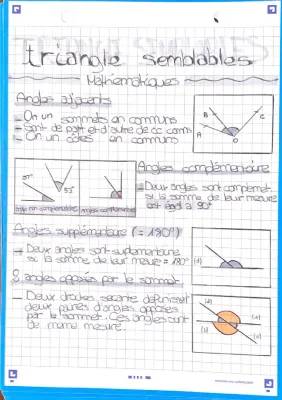 triangle semblables
Mathématiques
Angles adjacents
- On un sommets en communs
- Sont de part et d'autre de cc comns
- On un côtés en communs
B
C
A
O
Angles complémentaire
37°
53°
angles complémentaires
→ Deux angles sont complement. si la somme de leur mesure est égal à 90°
Angles supplémentaire (=180°)
→ Deux angles sont suplementaire si la somme de leur mesure = 180°
(d)
2 angles opposés par le sommet
- Deux droites secante definissent deux paires d'angles opposés par le sommet. Ces angles sont de meme mesure.